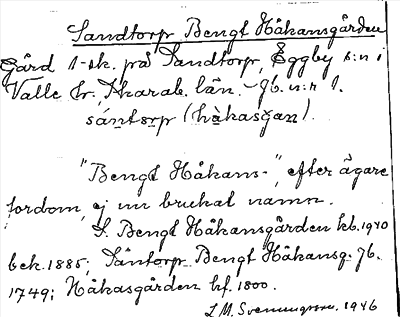 Sandtorp Bengt Håkansgården
Gård 1 sk. på Sandtorp, Eggby s:n i
Valle hr., Skarab. län. - Jb. n:r 1.
sán̲to̲rp (hàkasgan).
"Bengt Håkans-", efter ägare
fordom, ej nu brukat namn.
S. Bengt Håkansgården kb. 1940
bek. 1885; Såntorp Bengt Håkansg. Jb.
1749; Håkasgården hf. 1800.
L.M. Svenungsson. 1946